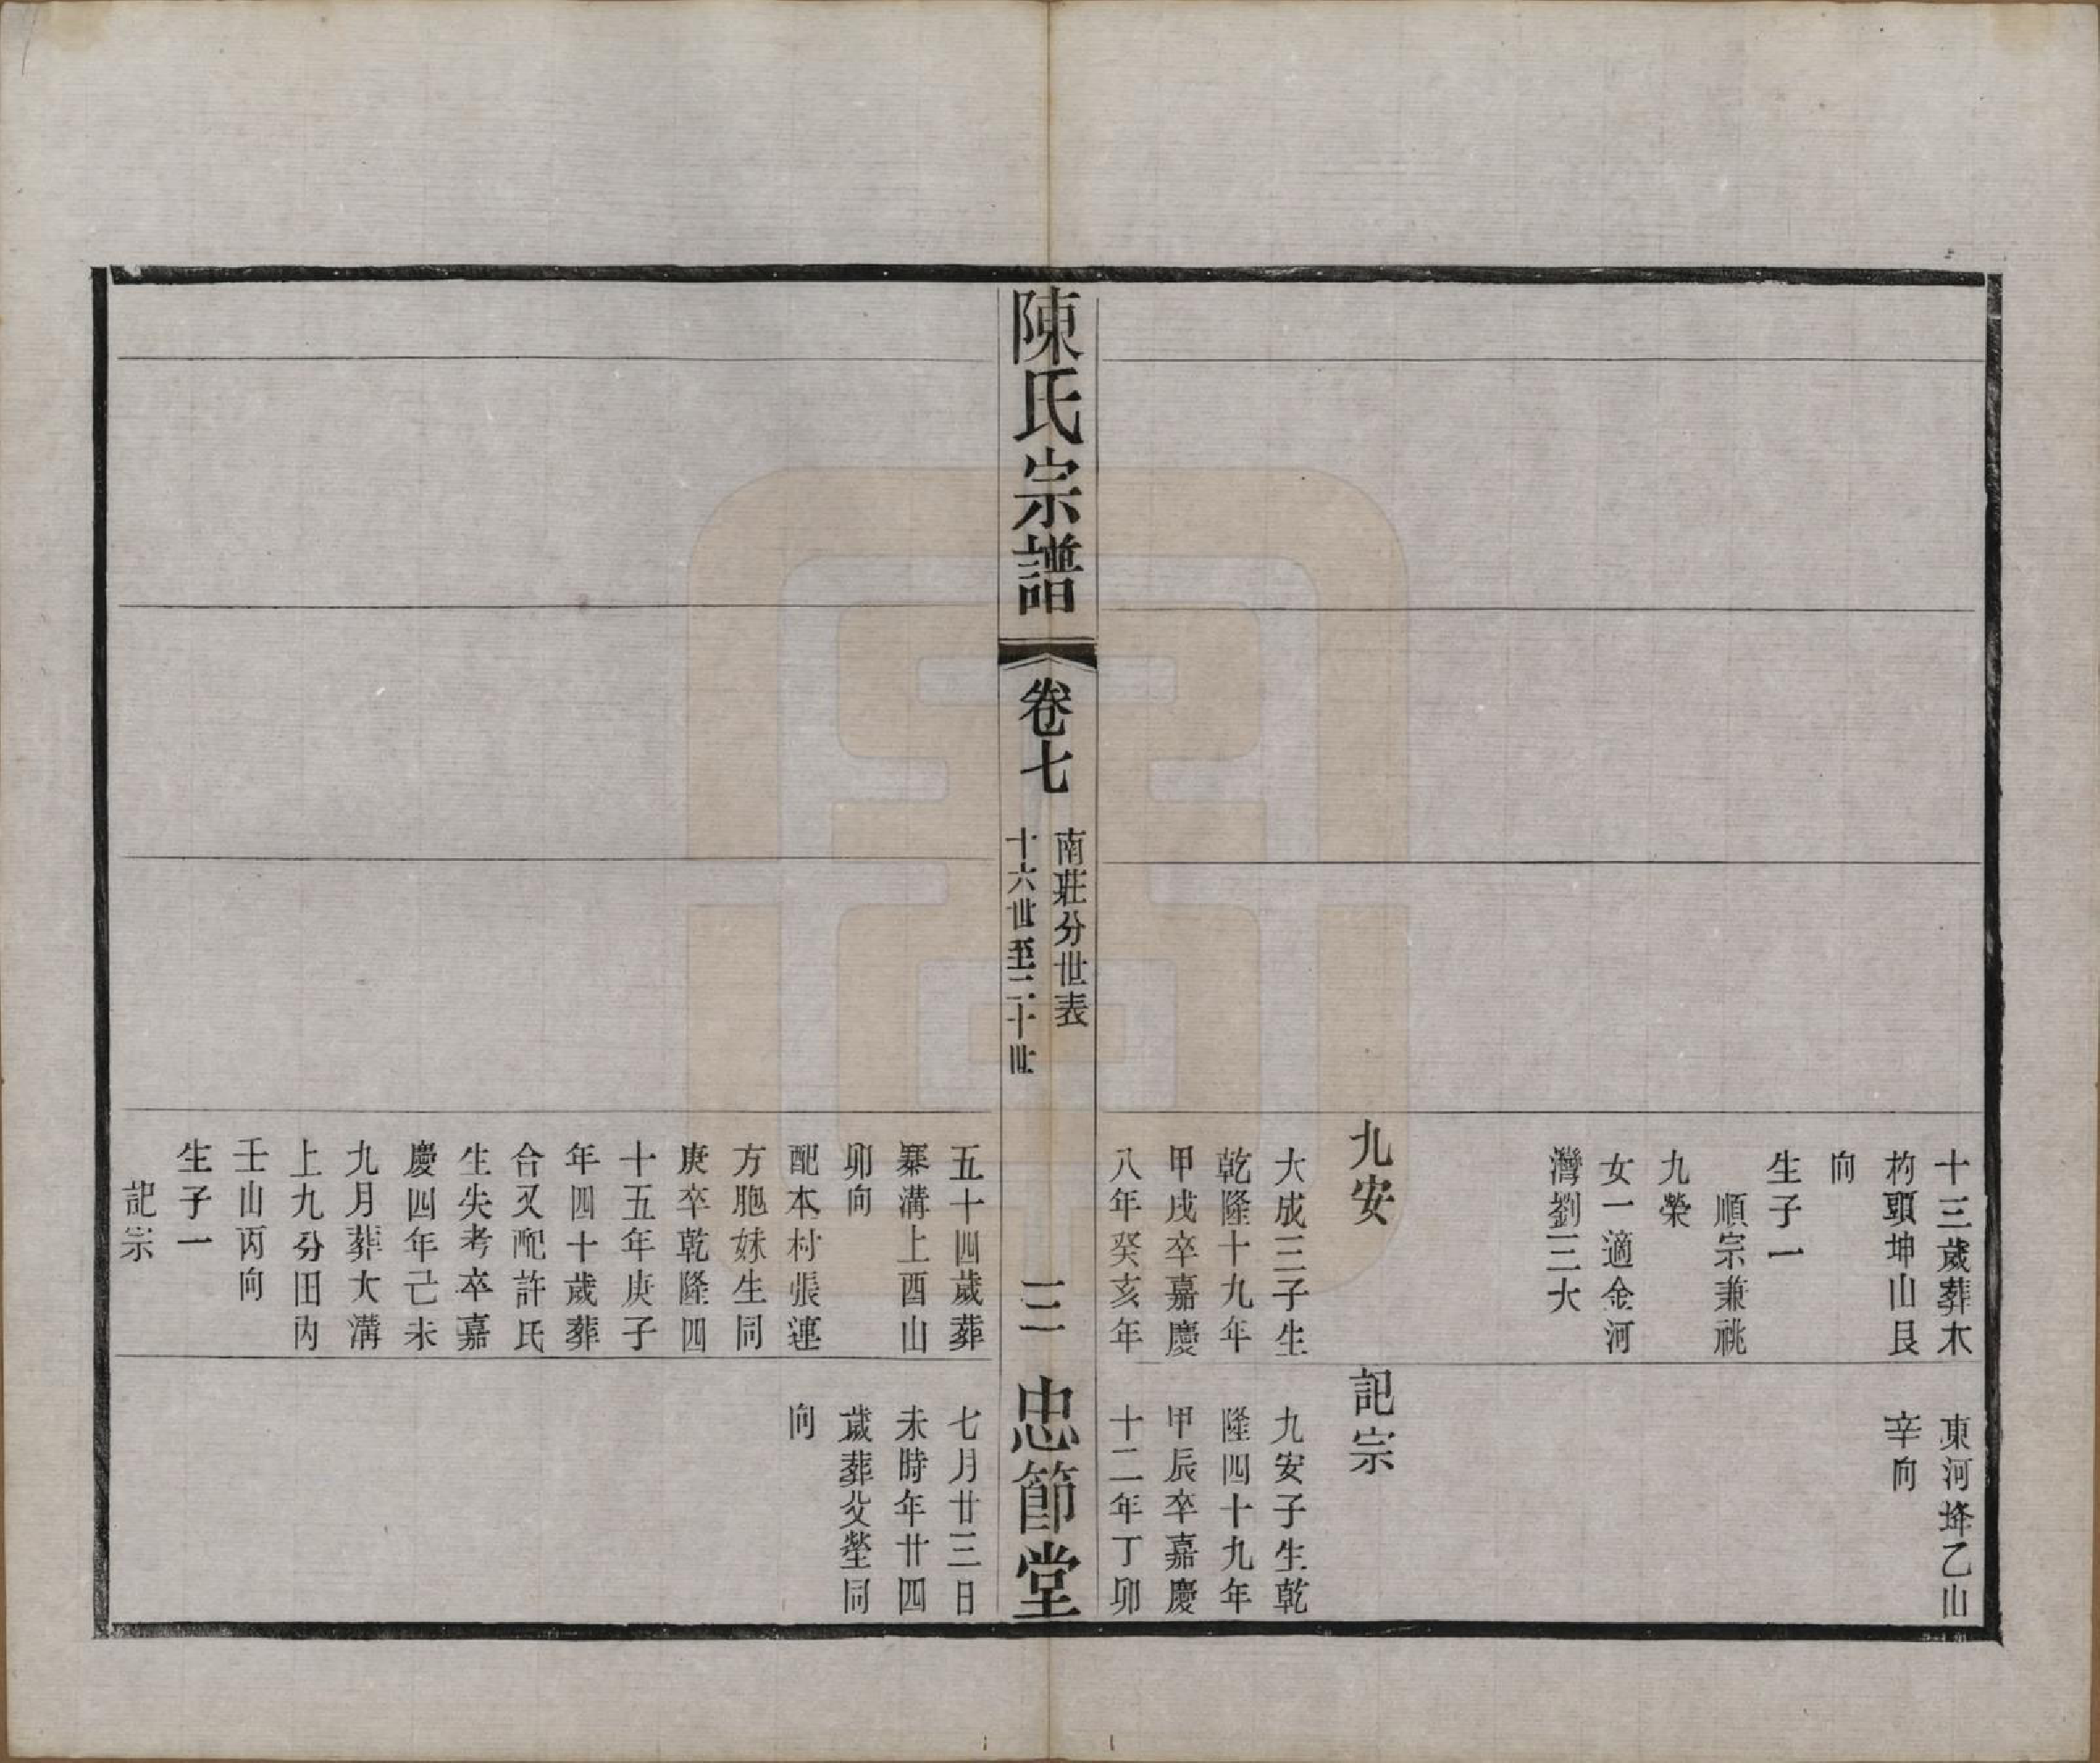 十三歲葬木
杓頭坤山艮
向
生子一
順宗兼祧
九榮
女一適金河
灣劉三大
東河埄乙山
辛向
九安
大成三子生
乾隆十九年
甲戌卒嘉慶
八年癸亥年
記宗
九安子生乾
隆四十九年
甲辰卒嘉慶
十二年丁卯
陳氏宗譜
卷七
南莊分世表
十六世至二十世
三
忠節堂
五十四歲葬
寨溝上酉山
卯向
配本村張連
方胞妹生同
庚卒乾隆四
十五年庚子
年四十歲葬
合又配許氏
生失考卒嘉
慶四年己未
九月葬大溝
上九分田內
壬山丙向
生子一
記宗
七月廿三日
未時年廿四
歲葬父塋同
向